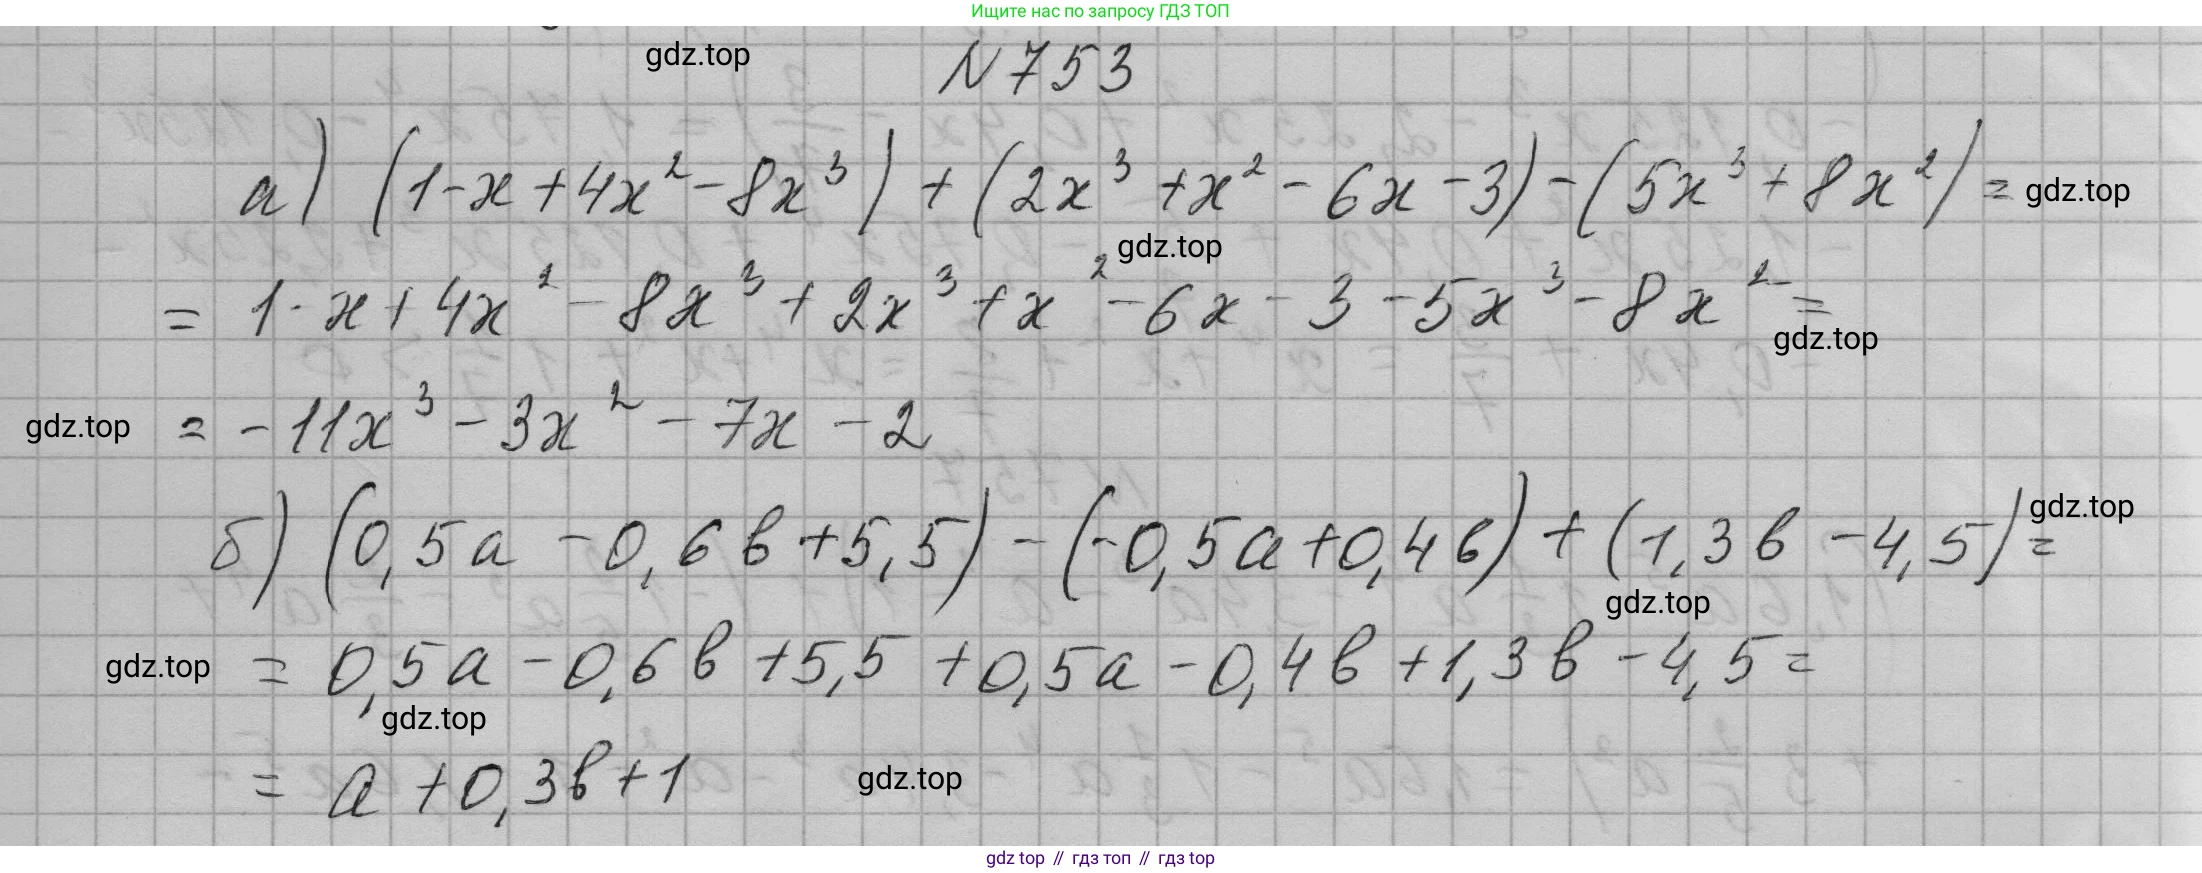 Ищите нас по запросу ГДЗ ТОП
gdz.top
N 753
а) (1-x+4x²-8x³)+(2x³+x²-6x-3)-(5x³+8x²)= gdz.top
gdz.top
= 1-x+4x²-8x³+2x³+x²-6x-3-5x³-8x²=
gdz.top
gdz.top = -11x³-3x²-7x-2
gdz.top
б) (0,5a-0,6b+5,5)-(-0,5a+0,4b)+(1,3b-4,5)=
gdz.top
gdz.top = 0,5a-0,6b+5,5+0,5a-0,4b+1,3b-4,5=
gdz.top
= a+0,3b+1 gdz.top
gdz top // гдз топ // гдз top